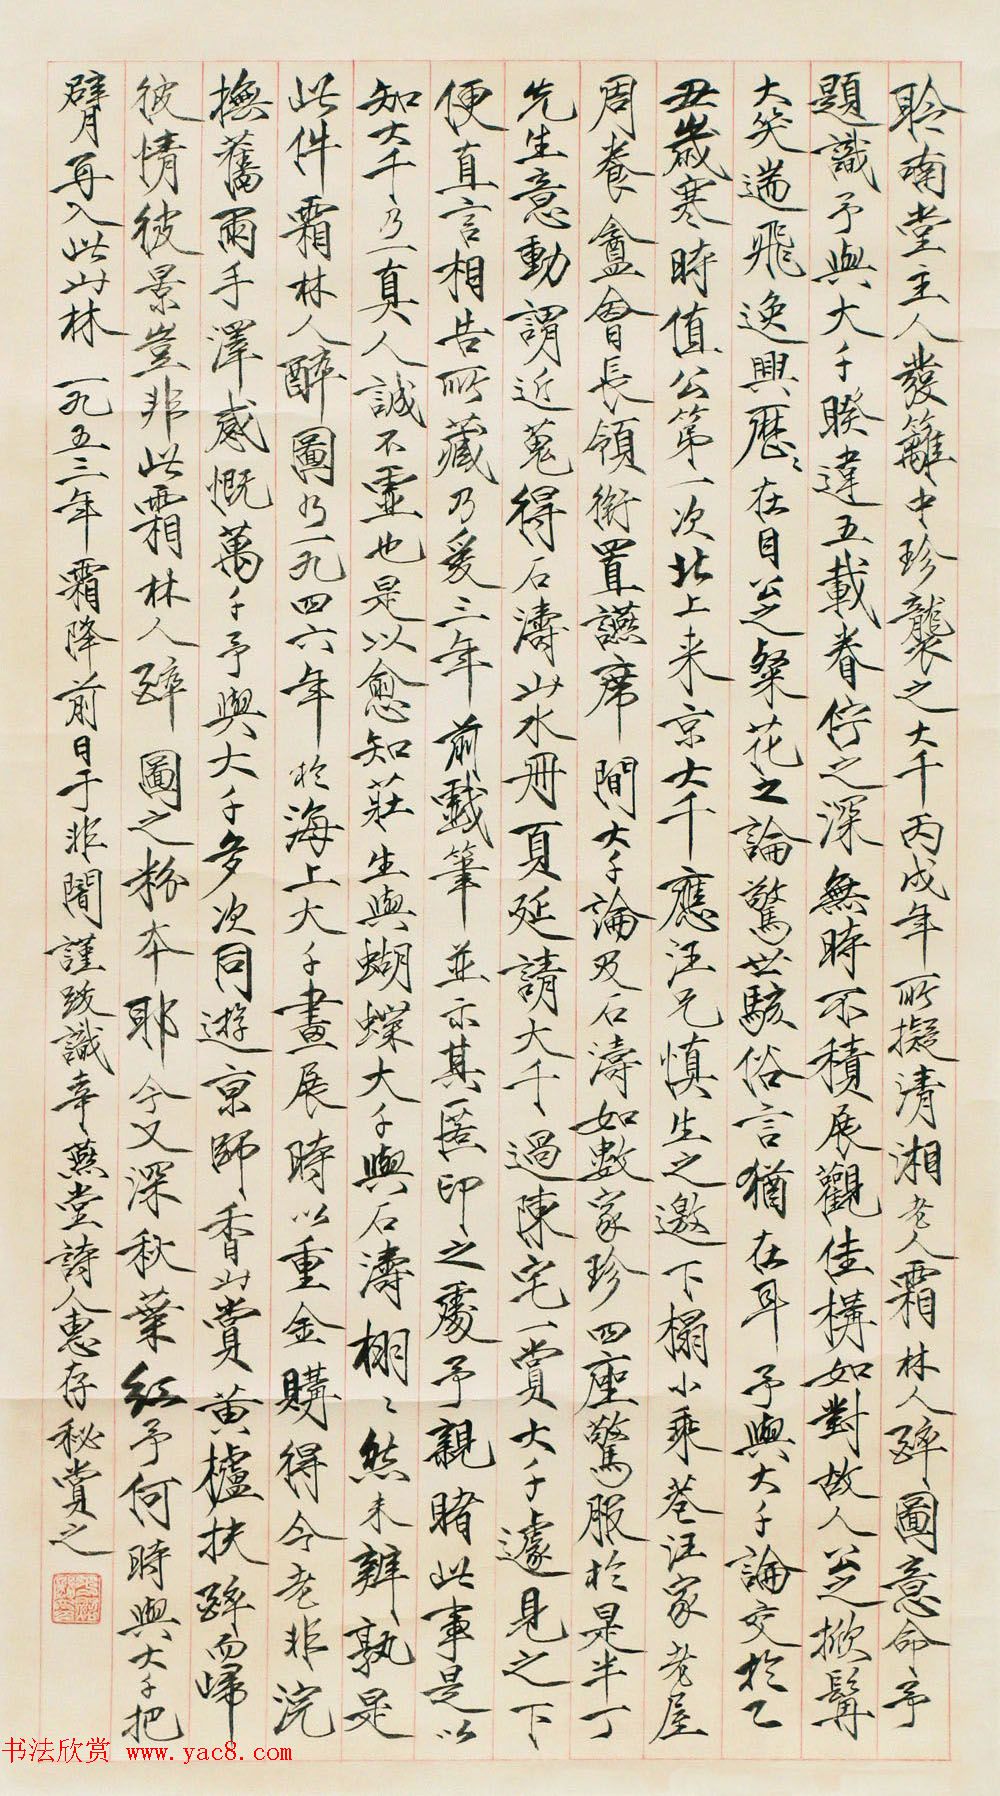 聆喃堂主人發籬中珍襲之大千丙戌年所擬清湘老人霜林人醉圖意命予
題識予與大千睽違五載眷佇之深無時不積展觀佳構如對故人公之掀髯
大笑遄飛逸興歷歷在目公之粲花之論驚世駭俗言猶在耳予與大千論交於乙
丑歲寒時值公第一次北上来京大千應汪兄慎生之邀下榻小乘巷汪家老屋
周養盦會長領銜置讌席間大千論及石濤如數家珍四座驚服於是半丁
先生意動謂近蒐得石濤山水冊頁延請大千過陳宅一賞大千遽見之下
便直言相告所藏乃爰三年前戲筆並示其匿印之處予親睹此事是以
知大千乃一真人誠不虛也是以愈知莊生與蝴蝶大千與石濤栩栩然未辨孰是
此件霜林人醉圖乃一九四六年於海上大千畫展時以重金購得今老非浣
撫舊雨手澤感慨萬千予與大千多次同遊京師香山賞黄櫨扶醉而歸
彼情彼景豈非此霜林人醉圖之粉本耶今又深秋葉紅予何時與大千把
臂再入此山林 一九五三年霜降前日于非闇謹跋識幸燕堂詩人惠存秘賞之
书法欣赏 www.yac8.com